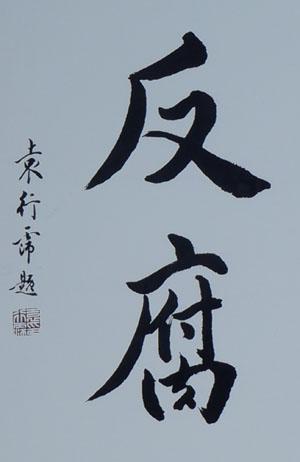 反腐
袁行霈题